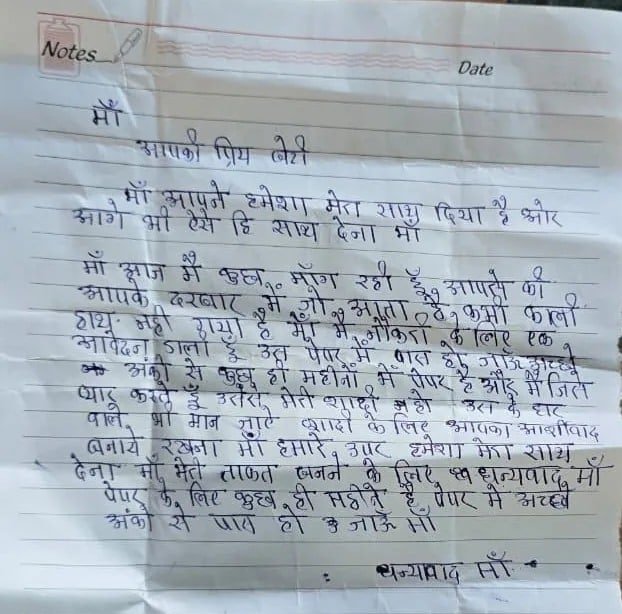 Notes
Date
माँ
आपकी प्रिय बेटी
माँ आपने हमेशा मेरा साथ दिया है और
आगे भी ऐसे हि साथ देना माँ
माँ आज मै कुछ माँग रही हूँ आपसे की
आपके दरबार में जो आता है कभी काली
हाथ नही गया है माँ मै नौकरी के लिए एक
आवेदन डाली हूँ उस पेपर में पास हो जाऊँ अच्छे
अंको से कुछ ही महीनों में पेपर है और मैं जिसे
प्यार करते हूँ उससे मेरी शादी हो उस के घर
वाले भी मान जाये शादी के लिए आपका आशीवाद
बनाये रखना माँ हमारे उपर हमेशा मेरा साथ
देना माँ मेरी ताकत बनने के लिए धन्यवाद माँ
पेपर के लिए कुछ ही महीने है पेपर मे अच्छे
अंको से पास हो जाऊँ माँ
धन्यवाद माँ